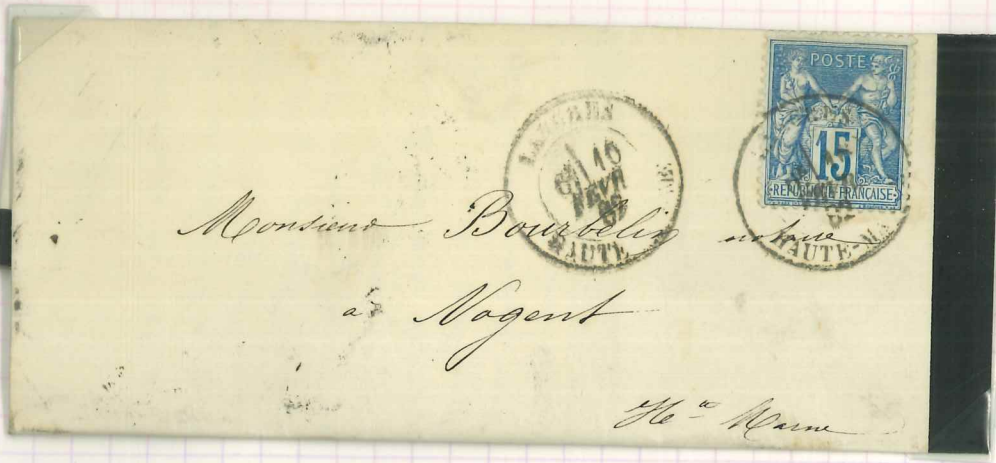 POSTE
15
REPUBLIQUE FRANÇAISE
LANGRES
16
FEVR
82
HAUTE
HAUTE-MA
Monsieur Bourbelin notaire
a Nogent
Hte Marne